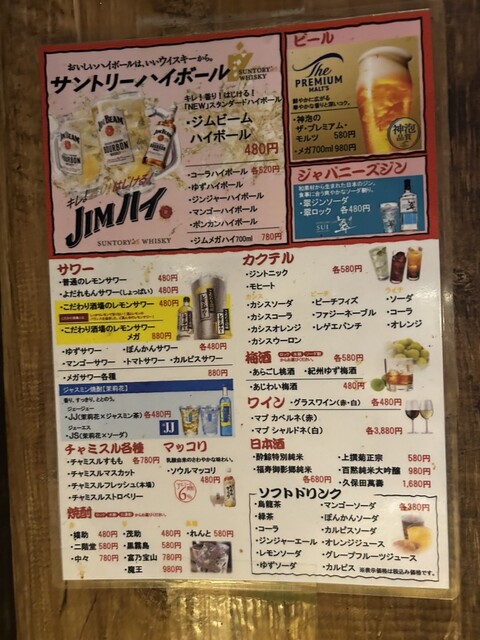 おいしいハイボールは、いいウイスキーから。
サントリーハイボール
SUNTORY WHISKY
キレ!香り!はじける!
「NEW」スタンダードハイボール
・ジムビーム
ハイボール
480円
・コーラハイボール 各520円
・ゆずハイボール
・ジンジャーハイボール
・マンゴーハイボール
・ポンカンハイボール
・ジムメガハイ700ml 780円
JIM BEAM
BOURBON
JIMハイ
SUNTORY WHISKY
ビール
The
PREMIUM
MALT'S
・神泡の
ザ・プレミアム・
モルツ 580円
・メガ700ml 980円
神泡
品質
ジャパニーズジン
・翠ジンソーダ
・翠ロック 各480円
SUI
翠
サワー
・普通のレモンサワー 480円
・よだれもんサワー(しょっぱい) 480円
・こだわり酒場のレモンサワー 480円
・こだわり酒場のレモンサワー
メガ 880円
・ゆずサワー ・ぽんかんサワー 各480円
・マンゴーサワー ・トマトサワー ・カルピスサワー
・メガサワー各種 880円
ジャスミン焼酎【茉莉花】
香り、すっきり、ととのう。
ジェージェー
・JJ(茉莉花×ジャスミン茶) 各480円
ジェーエス
・JS(茉莉花×ソーダ)
JJ
チャミスル各種
・チャミスルすもも 各780円
・チャミスルマスカット
・チャミスルフレッシュ(本場)
・チャミスルストロベリー
マッコリ
・ソウルマッコリ
480円
6%
焼酎
・鏡助 480円 ・茂助 480円 ・れんと 580円
・二階堂 580円 ・黒霧島 580円
・中々 780円 ・富乃宝山 780円
・魔王 980円
カクテル
・ジントニック 各580円
・モヒート
カシス
・カシスソーダ
・カシスコーラ
・カシスオレンジ
・カシスウーロン
ピーチ
・ピーチフィズ
・ファジーネーブル
・レゲエパンチ
ライチ
・ソーダ
・コーラ
・オレンジ
梅酒
各580円
・あらごし桃酒 ・紀州ゆず梅酒
・あじわい梅酒 480円
ワイン
・グラスワイン(赤・白) 各480円
・マプ カベルネ(赤)
・マプ シャルドネ(白) 各3,880円
日本酒
・酔鯨特別純米 ・上撰菊正宗 580円
・福寿御影郷純米 ・百黙純米大吟醸 980円
各680円 ・久保田萬壽 1,680円
ソフトドリンク
・烏龍茶 ・マンゴーソーダ 各380円
・緑茶 ・ぽんかんソーダ
・コーラ ・カルピスソーダ
・ジンジャーエール ・オレンジジュース
・レモンソーダ ・グレープフルーツジュース
・ゆずソーダ ・カルピス
※表示価格は税込み価格です。